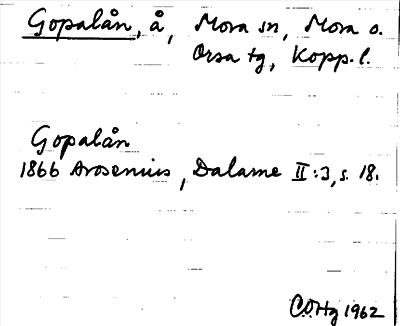 Gopalån, å, Mora sn, Mora o.
Orsa tg, Kopp. l.
Gopalån
1866 Arosenius, Dalarne II:3, s. 18.
C.O.Hg 1962